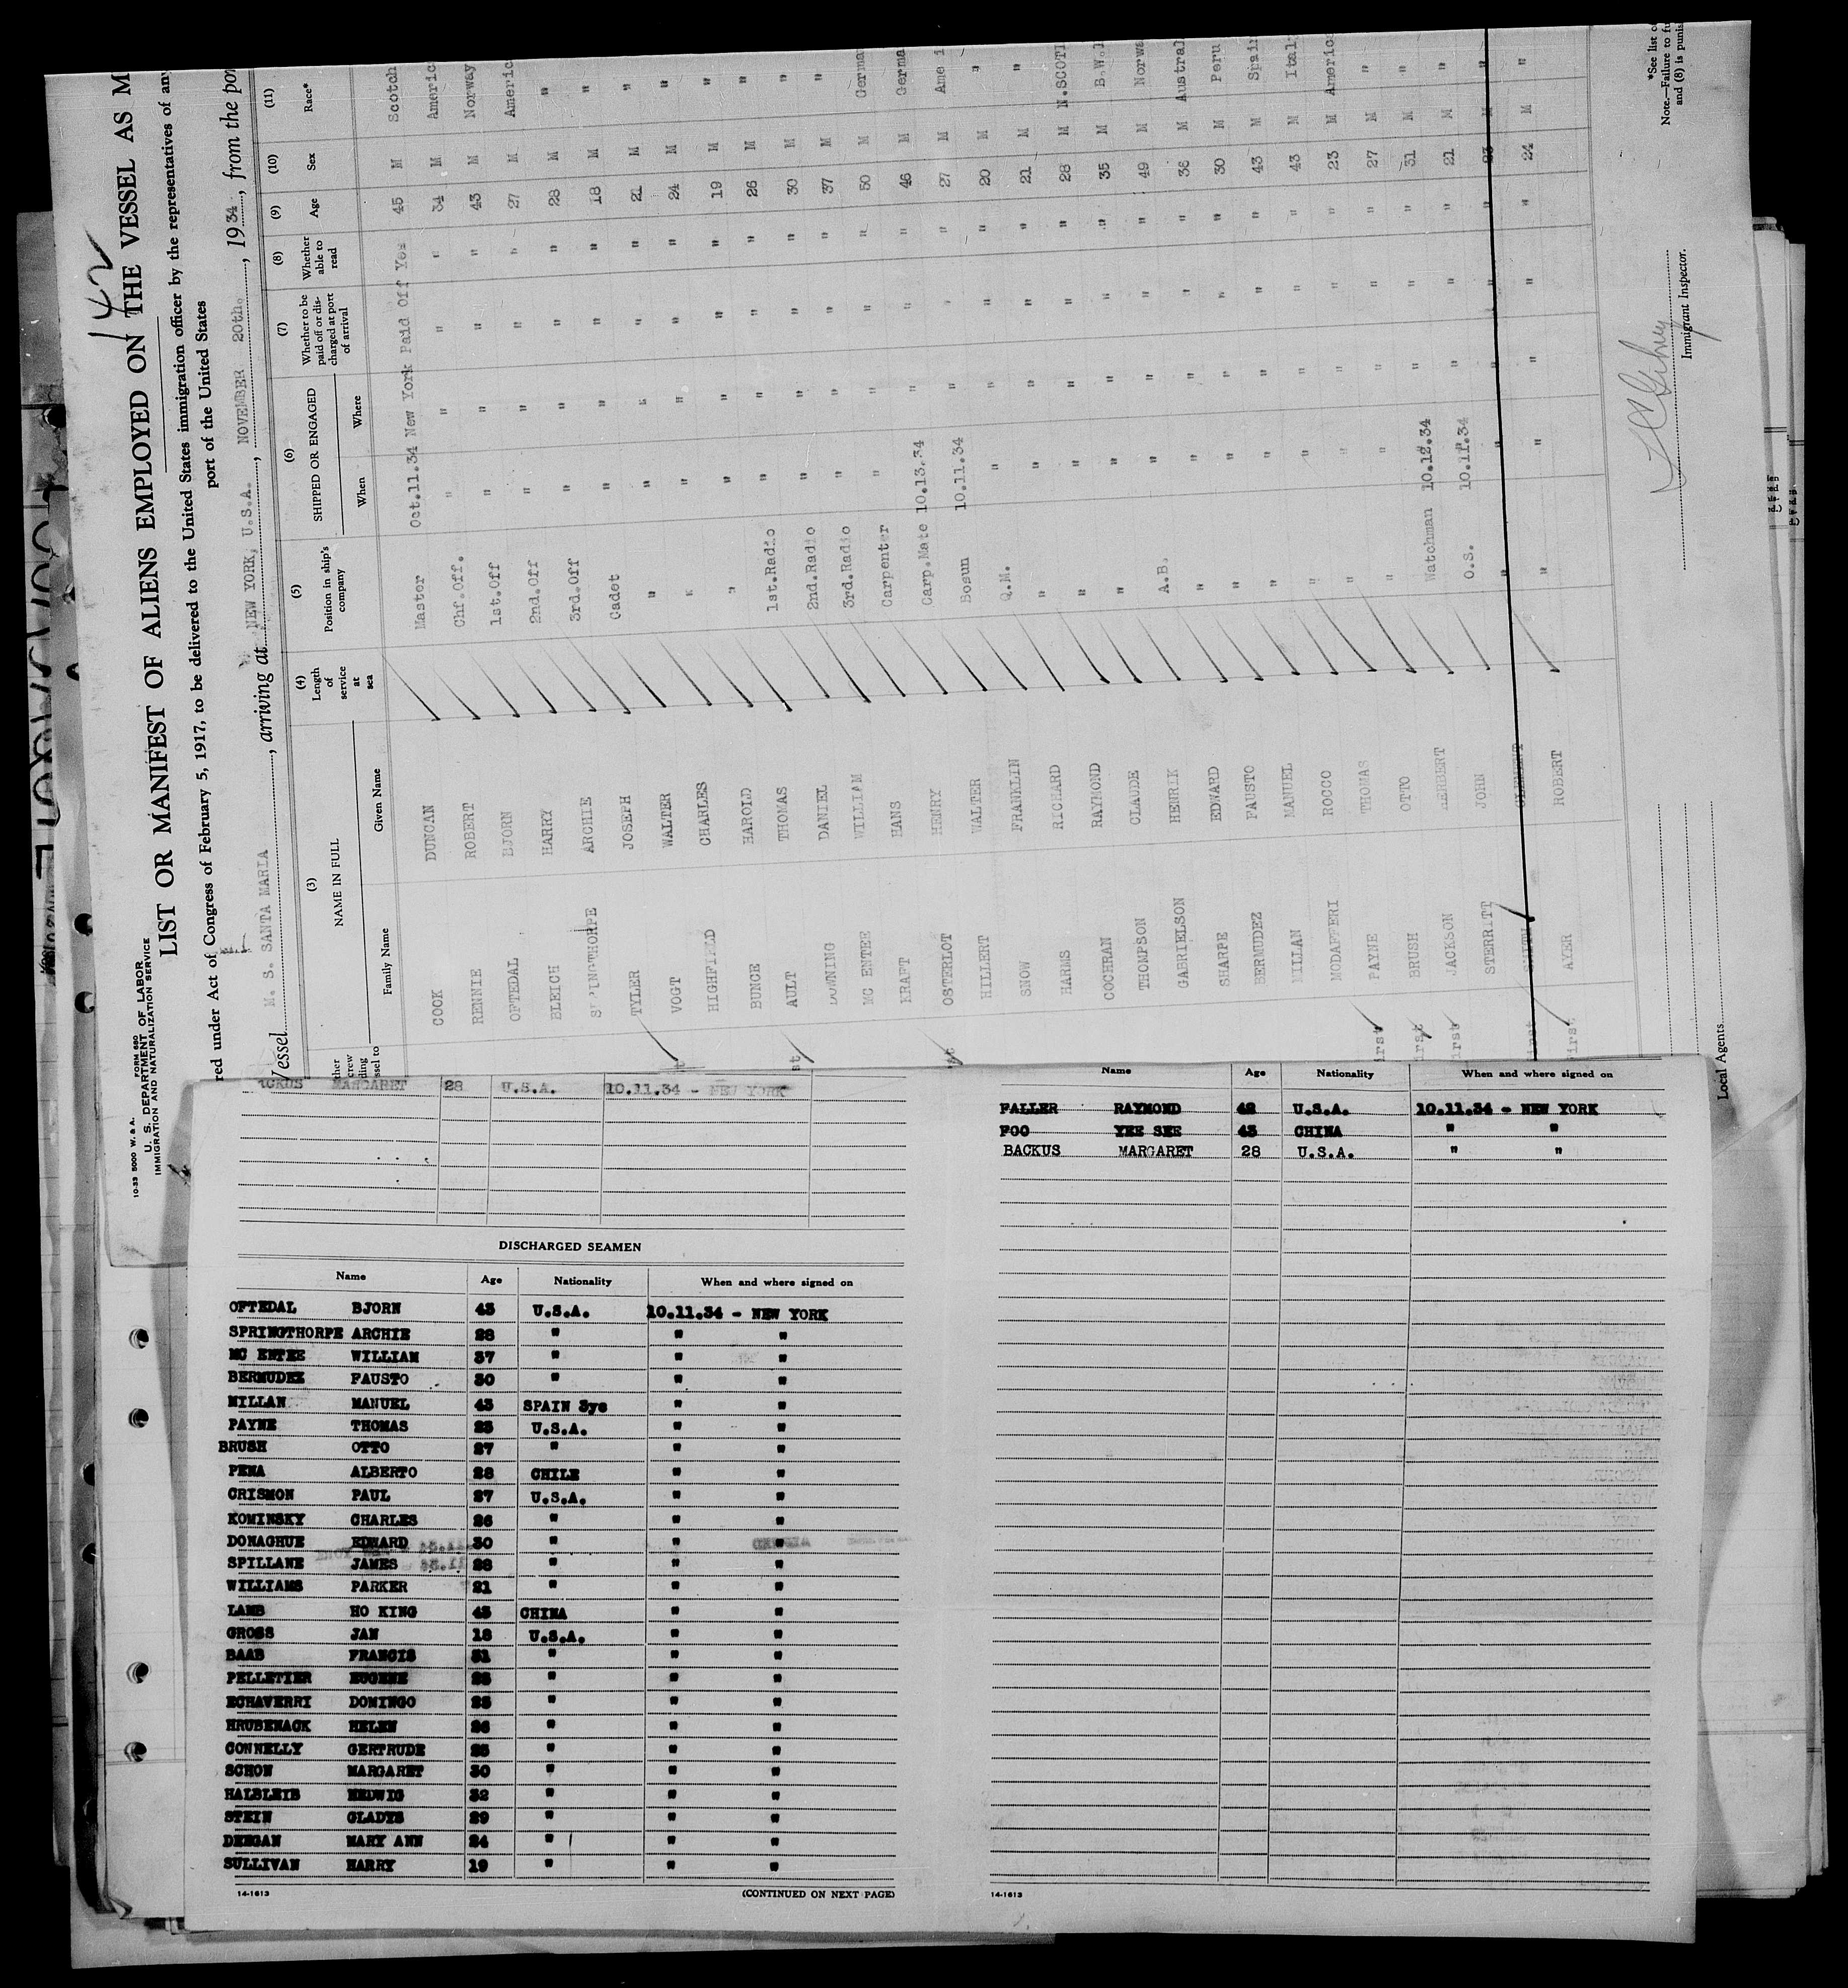 142
10-33 5000 W. & A. FORM 680
U. S. DEPARTMENT OF LABOR
IMMIGRATION AND NATURALIZATION SERVICE
LIST OR MANIFEST OF ALIENS EMPLOYED ON THE VESSEL AS M
red under Act of Congress of February 5, 1917, to be delivered to the United States immigration officer by the representatives of any
port of the United States
Vessel M. S. SANTA MARIA, arriving at NEW YORK, U.S.A., NOVEMBER 20th., 1934, from the por
(3) (4) (5) (6) (7) (8) (9) (10) (11)
NAME IN FULL Length of service at sea Position in ship's company SHIPPED OR ENGAGED Whether to be paid off or discharged at port of arrival Whether able to read Age Sex Race*
Family Name Given Name When Where
COOK DUNCAN Master Oct.11.34 New York Paid Off Yes 45 M Scotch
RENNIE ROBERT Chf.Off. " " " " 34 M Americ
OFTEDAL BJORN 1st.Off " " " " 43 M Norway
BLEICH HARRY 2nd.Off " " " " 27 M Americ
SPRINGTHORPE ARCHIE 3rd.Off " " " " 28 M "
TYLER JOSEPH Cadet " " " " 18 M "
VOGT WALTER " " " " " 21 M "
HIGHFIELD CHARLES " " " " " 24 M "
BUNCE HAROLD " " " " " 19 M "
AULT THOMAS 1st.Radio " " " " 26 M "
DOWNING DANIEL 2nd.Radio " " " " 30 M "
MC ENTEE WILLIAM 3rd.Radio " " " " 37 M "
KRAFT HANS Carpenter " " " " 50 M Germa
OSTERLOT HENRY Carp.Mate 10.13.34 " " " 46 M Germa
HILLERT WALTER Bosun 10.11.34 " " " 27 M Ame i
SNOW FRANKLIN Q.M. " " " " 20 M "
HARMS RICHARD " " " " " 21 M "
COCHRAN RAYMOND " " " " " 28 M N.SCOTI
THOMPSON CLAUDE " " " " 35 M B.W.I
GABRIELSON HENRIK A.B. " " " " 49 M Norwa
SHARPE EDWARD " " " " " 38 M Austral
BERMUDEZ FAUSTO " " " " " 30 M Peru
MILLAN MANUEL " " " " " 43 M Spain
MODAFFERI ROCCO " " " " " 43 M Italy
PAYNE THOMAS " " " " " 23 M Americ
BRUSH OTTO " " " " " 27 M "
JACKSON HERBERT Watchman 10.12.34 " " " 31 M "
STERRITT JOHN O.S. 10.11.34 " " " 21 M "
SMITH CLEMENT " " " " " 23 M "
AYER ROBERT " " " " " 24 M "
Immigrant Inspector.
*See list o
Note.—Failure to fu
and (8) is punis
Local Agents
BACKUS MARGARET 28 U.S.A. 10.11.34 - NEW YORK
DISCHARGED SEAMEN
Name Age Nationality When and where signed on
OFTEDAL BJORN 43 U.S.A. 10.11.34 - NEW YORK
SPRINGTHORPE ARCHIE 28 " " "
MC ENTEE WILLIAM 37 " " "
BERMUDEZ FAUSTO 30 " " "
MILLAN MANUEL 43 SPAIN 3ys " "
PAYNE THOMAS 23 U.S.A. " "
BRUSH OTTO 27 " " "
PENA ALBERTO 28 CHILE " "
CRISMON PAUL 27 U.S.A. " "
KOMINSKY CHARLES 26 " " "
DONAGHUE EDWARD 30 " " "
SPILLANE JAMES 28 " " "
WILLIAMS PARKER 21 " " "
LAMB HO KING 43 CHINA " "
GROSS JAN 18 U.S.A. " "
BAAB FRANCIS 31 " " "
PELLETIER EUGENE 23 " " "
ECHAVERRI DOMINGO 23 " " "
HRUBENACK HELEN 26 " " "
CONNELLY GERTRUDE 25 " " "
SCHON MARGARET 30 " " "
HALBLEIB HEDWIG 32 " " "
STEIN GLADYS 29 " " "
DEEGAN MARY ANN 24 " " "
SULLIVAN HARRY 19 " " "
14-1613 (CONTINUED ON NEXT PAGE)
Name Age Nationality When and where signed on
FALLER RAYMOND 42 U.S.A. 10.11.34 - NEW YORK
FOO YEE SEE 43 CHINA " "
BACKUS MARGARET 28 U.S.A. " "
14-1613